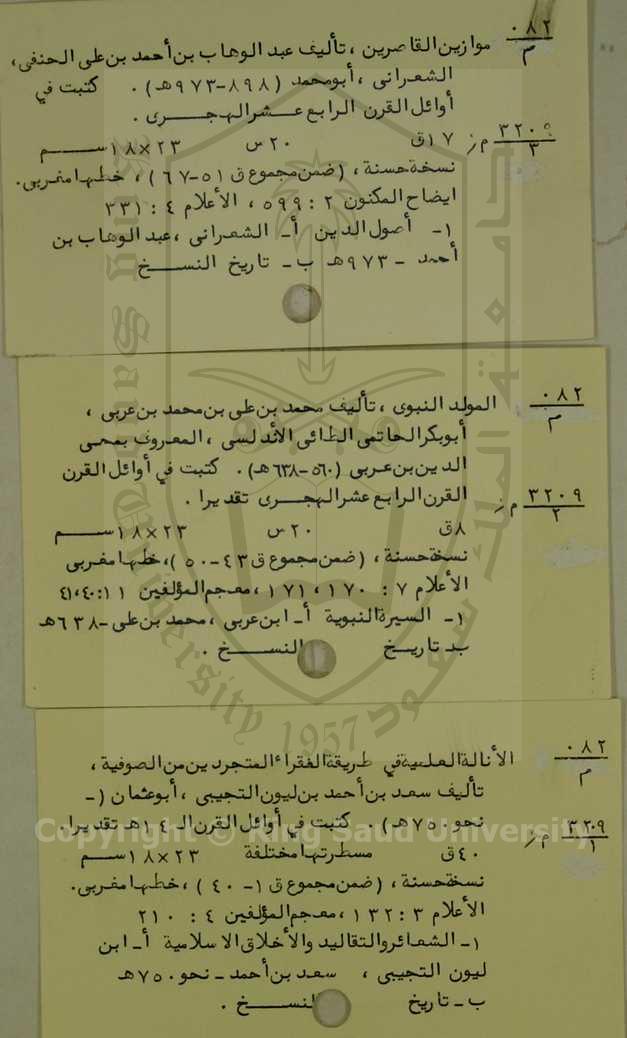 ٠٨٢
م
موازين القاصرين ، تأليف عبد الوهاب بن أحمد بن على الحنفى،
الشعرانى ، أبو محمد (٨٩٨-٩٧٣هـ) . كتبت في
أوائل القرن الرابع عشر الهجرى .
م ز ٣٢٠٩
٣
١٧ق ٢٠س ٢٣×١٨سم
نسخة حسنة ، (ضمن مجموع ق ٥١-٦٧) ، خطها مغربى.
ايضاح المكنون ٢ : ٥٩٩ ، الأعلام ٤ : ٣٣١
١- أصول الدين أ- الشعرانى ، عبد الوهاب بن
أحمد - ٩٧٣هـ ب- تاريخ النسخ
٠٨٢
م
المولد النبوى ، تأليف محمد بن على بن محمد بن عربى ،
أبو بكر الحاتمى الطائى الأندلسى ، المعروف بمحى
الدين بن عربى (٥٦٠-٦٣٨هـ) . كتبت في أوائل القرن
القرن الرابع عشر الهجرى تقديرا .
م ز ٣٢٠٩
٢
٨ق ٢٠س ٢٣×١٨سم
نسخة حسنة ، (ضمن مجموع ق ٤٣-٥٠)، خطها مغربى
الأعلام ٧ : ١٧٠ ، ١٧١ ، معجم المؤلفين ١١ :٤٠،٤١
١- السيرة النبوية أ- ابن عربى ، محمد بن على -٦٣٨هـ
ب- تاريخ النسخ .
٠٨٢
م
الأنالة العلمية في طريقة الفقراء المتجردين من الصوفية ،
تأليف سعد بن أحمد بن ليون التجيبى ، أبو عثمان ( -
نحو ٧٥٠هـ) . كتبت في أوائل القرن الـ ١٤هـ تقديرا.
م ز ٣٢٠٩
١
٤٠ق مسطرتها مختلفة ٢٣×١٨سم
نسخة حسنة ، (ضمن مجموع ق ١-٤٠) ، خطها مغربى.
الأعلام ٣ : ١٣٢ ، معجم المؤلفين ٤ : ٢١٠
١- الشعائر والتقاليد والأخلاق الاسلامية أ- ابن
ليون التجيبى ، سعد بن أحمد - نحو ٧٥٠هـ
ب- تاريخ النسخ .
Copyright © King Saud University
جامعة الملك سعود
King Saud University
1957